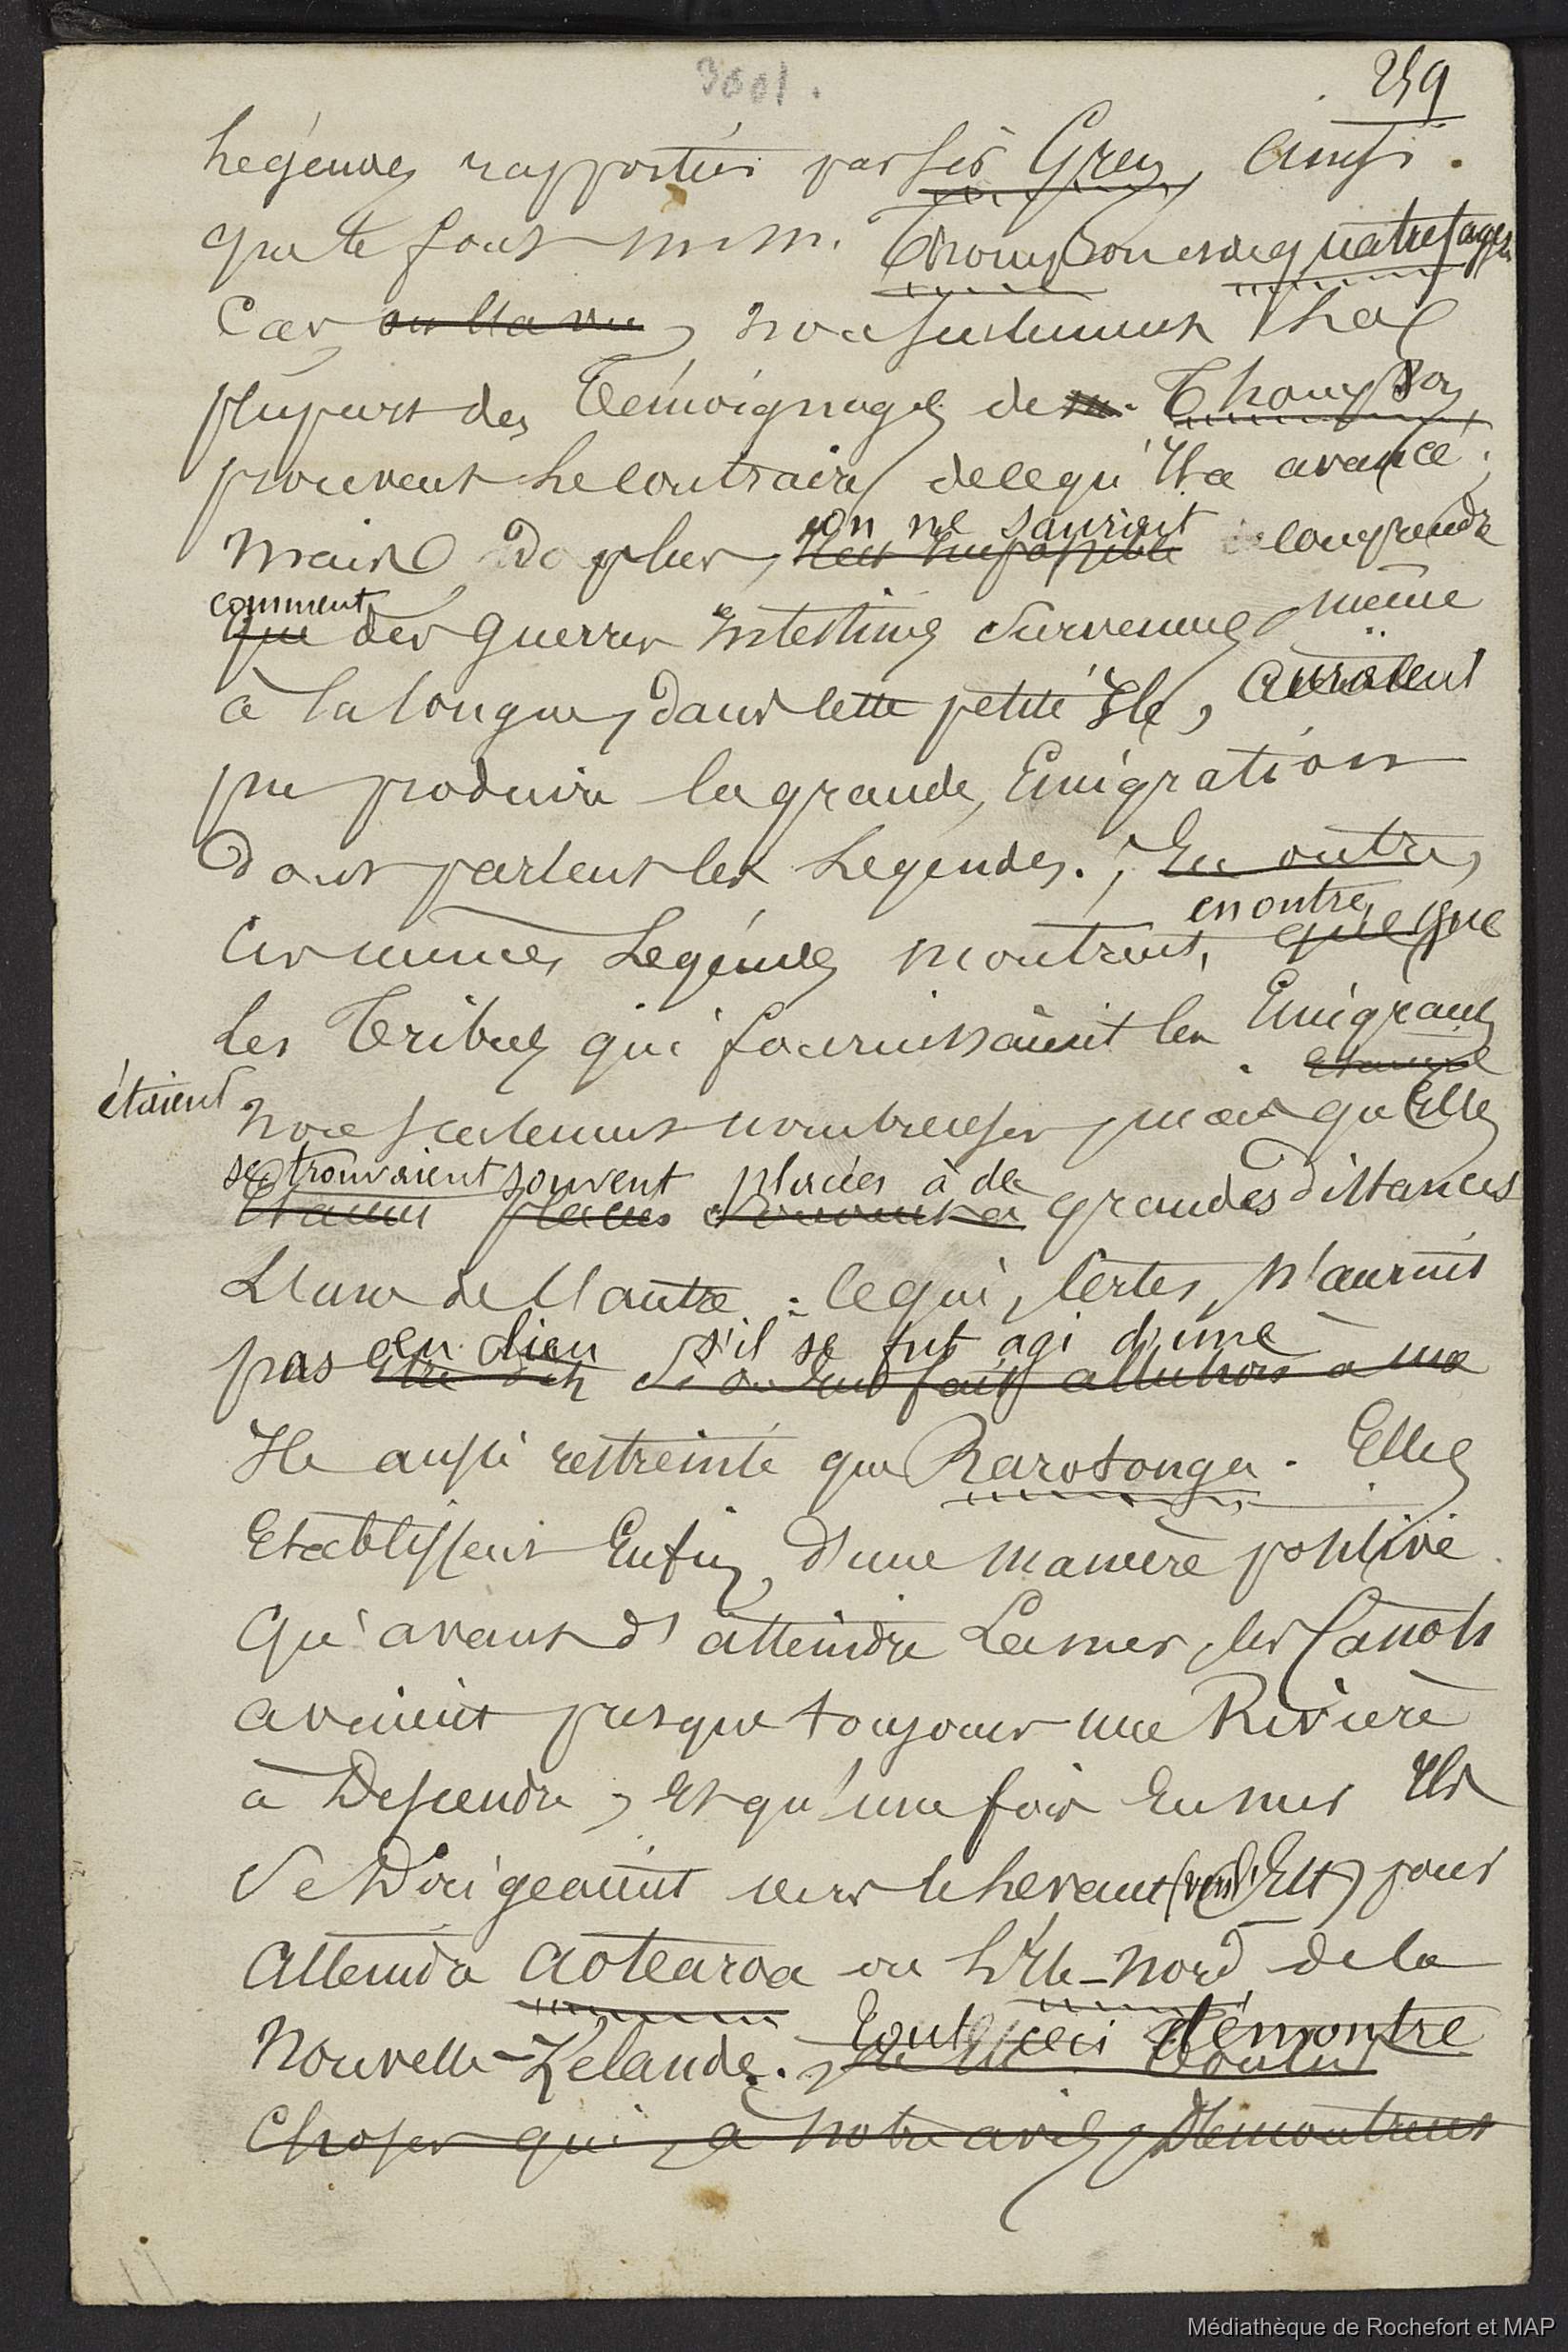 259
légendes rapportées par Sir Grey, ainsi
que le font M.M. Thompson et de Quatrefages
Car on l'a vu, non seulement la
plupart des témoignages de M. Thompson,
prouvent le contraire de ce qu'il a avancé;
on ne saurait
Mais, de plus, il est impossible de comprendre
comment
que des guerres intestines survenues même
à la longue, dans cette petite île, auraient
pu produire la grande Émigration
dont parlent les Légendes. En outre,
en outre,
Ces mêmes Légendes montrent, que
les Tribus qui fournissaient les Émigrants
étaient
étaient
non seulement nombreuses, mais qu'elles
se trouvaient souvent placées à de
étaient placées souvent à grandes distances
L'une de l'autre : ce qui, certes, n'aurait
eu lieu s'il se fut agi d'une
pas être dit si on eut fait allusion à une
Ile aussi restreinte que Rarotonga. Elles
Etablissent Enfin, d'une manière positive
qu'avant d'atteindre La mer, les Canots
avaient presque toujours une Rivière
à Descendre, et qu'une fois En mer Ils
Se Dirigeaient vers le levant (vers l'Est) pour
Atteindre Aotearoa ou L'Ile-Nord de la
Tout ceci démontre
Nouvelle-Zélande.
Choses qui, à notre avis, Démontrent
Médiathèque de Rochefort et MAP